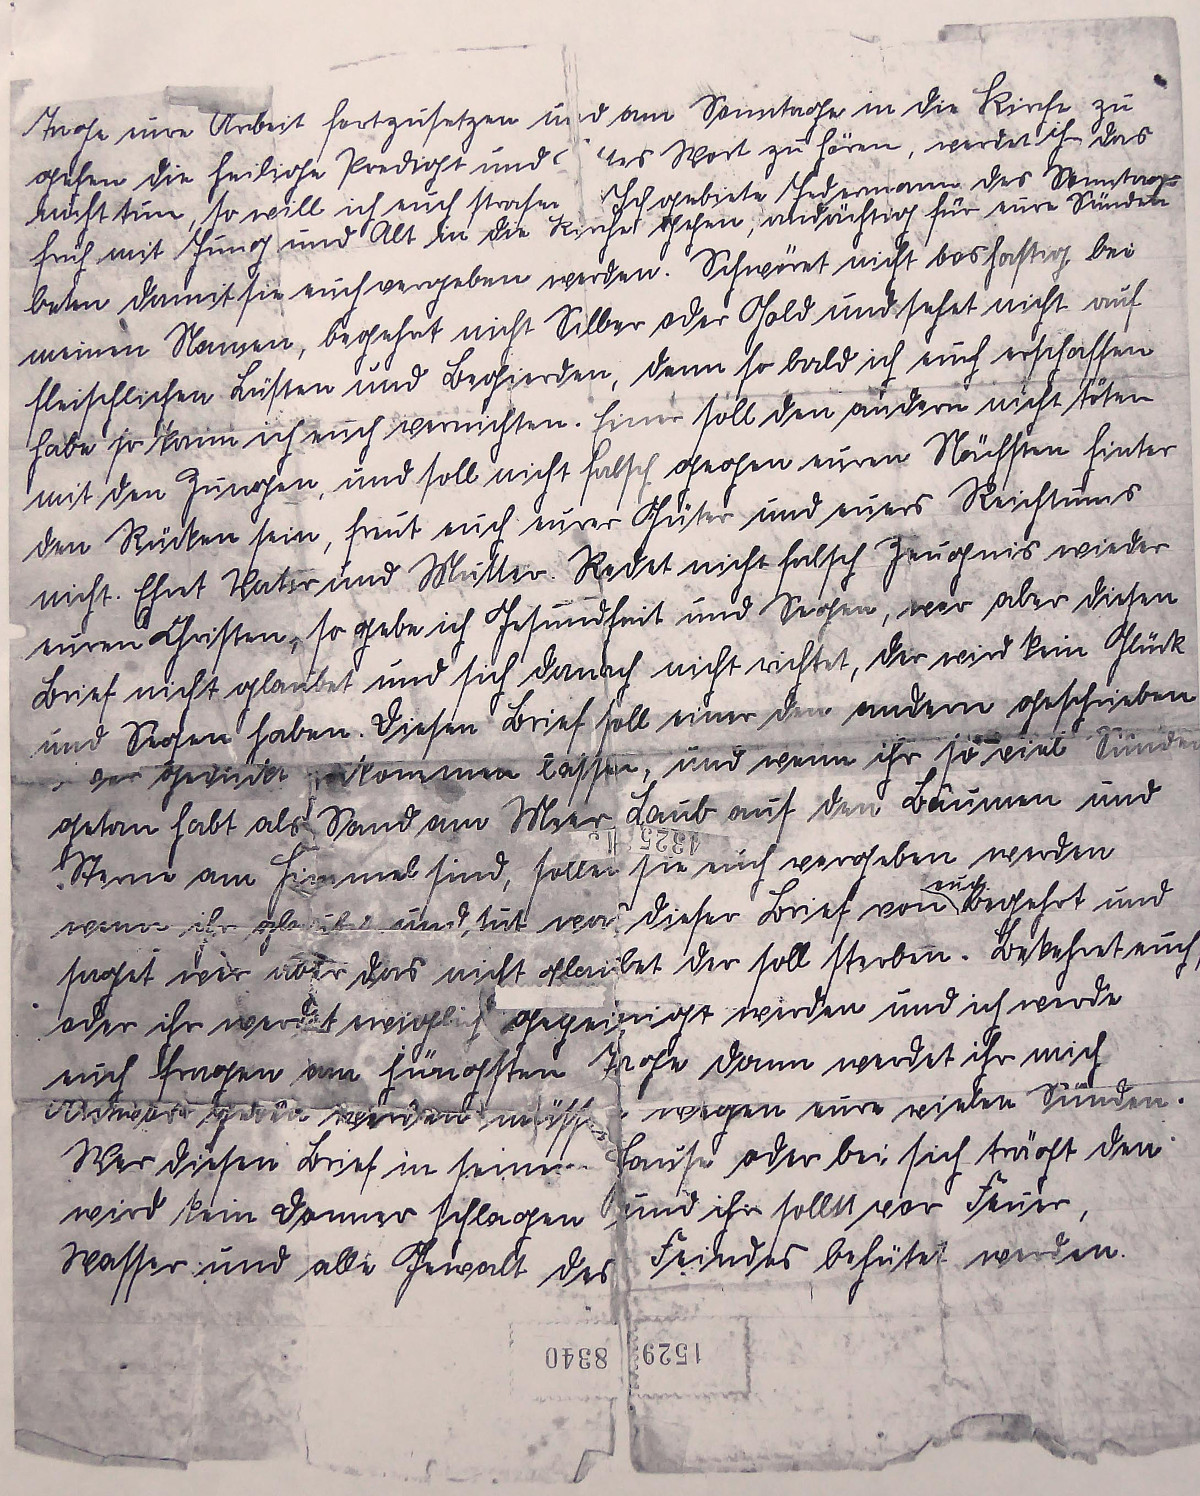 Tage eure Arbeit fortzusetzen und am Sonntage in die Kirche zu
gehen die heilige Predigt und tes Wort zu hören, werdet ihr das
nicht tun, so will ich euch strafen Ich gebiete Jedermann des Sonntag=
früh mit Jung und Alt in die Kirche gehen, andächtig für eure Sünden
beten damit sie euch vergeben werden. Schwöret nicht boshaftig bei
meinen Namen, begehrt nicht Silber oder Gold und sehet nicht auf
fleischlichen Lüsten und Begierden, denn so bald ich euch erschaffen
habe so kann ich euch vernichten. Einer soll den andern nicht töten
mit den Zungen, und soll nicht falsch gegen euren Nächsten hinter
den Rücken sein, freut euch eurer Güter und euers Reichtums
nicht. Ehret Vater und Mutter. Redet nicht falsch Zeugnis wieder
euren Christen, so gebe ich Gesundheit und Segen, wer aber diesen
Brief nicht glaubet und sich danach nicht richtet, der wird kein Glück
und Segen haben. Diesen Brief soll einer den andern geschrieben
oder gedruckt zukommen lassen, und wenn ihr so viel Sünden
getan habt als Sand am Meer Laub auf den Bäumen und
4325
Sterne am Himmel sind, sollen sie euch vergeben werden
wenn ihr glaubet und tut was dieser Brief von euch begehrt und
saget wer aber das nicht glaubet der soll sterben. Bekehret euch,
oder ihr werdet ewiglich gepeinigt werden und ich werde
euch fragen am jüngsten Tage dann werdet ihr mich
Antwort geben werden müssen wegen eure vielen Sünden.
Wer diesen Brief in seinem Hause oder bei sich trägt den
wird kein Donner schlagen und ihr sollt vor Feuer,
Wasser und alle Gewalt des Feindes behütet werden.
1529
8340